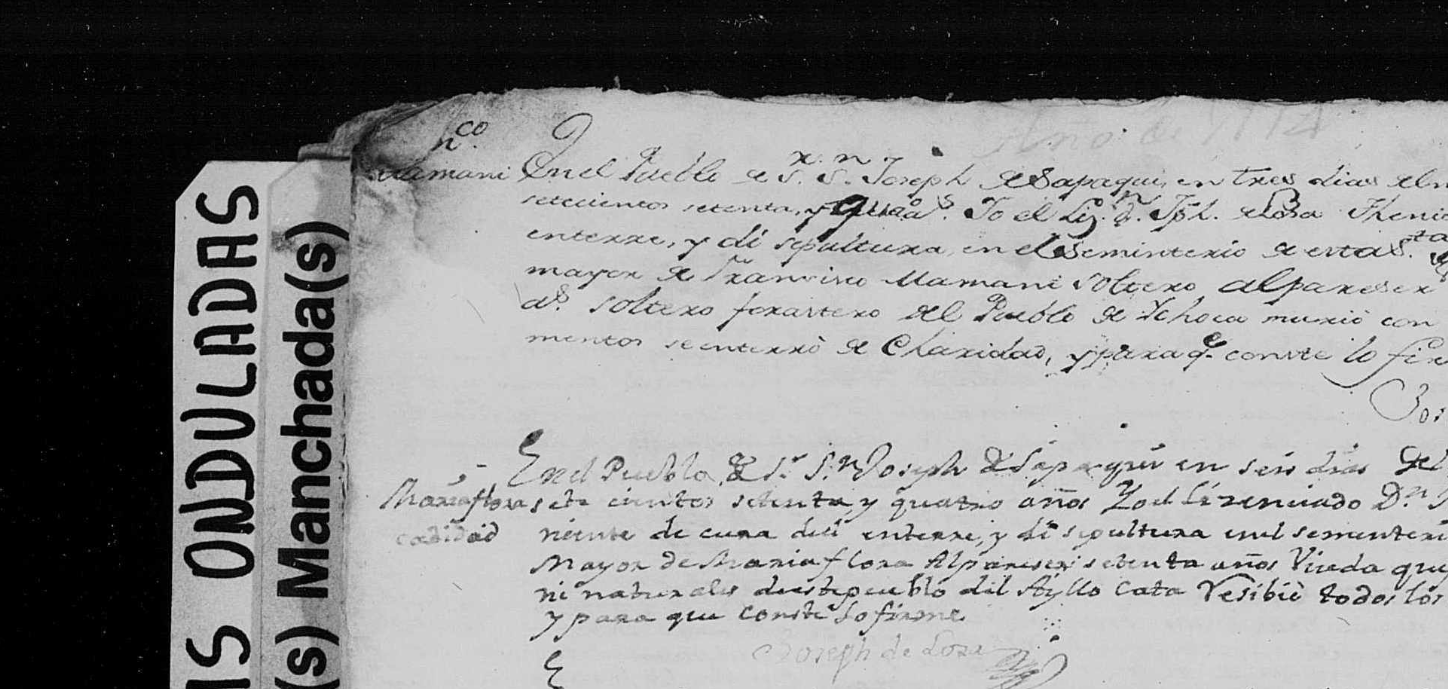 Año de 1774
nco.
Mamani
En el Pueblo de S.r S.n Joseph de Sapaqui, en tres dias del
setecientos setenta, y quatro a.s Yo el Liz.do D.n Jph. de Loza Theni
enterre, y di sepultura, en el Seminterio de esta S.ta
mayor de Francisco Mamani Soltero al pareser
a.s soltero forastero del Pueblo de Ichoca murió con
mentos se enterró de Charidad, y para q.e conste lo fir
Jos
En el Pueblo de S.r S.n Joseph de Sapaqui en seis dias del
Maria flora
cadidad
sete cientos setenta y quatro años Yo el Lizenciado D.n
niente de cura deii enterre, y di sepultura en el sementeri
Mayor de Maria flora Al pareser setenta años Viuda que
ni naturales deste pueblo del Ayllo Cata Resibió todos los
y para que conste lo firme
Joseph de Loza
E
IS ONDULADAS
(s) Manchada(s)